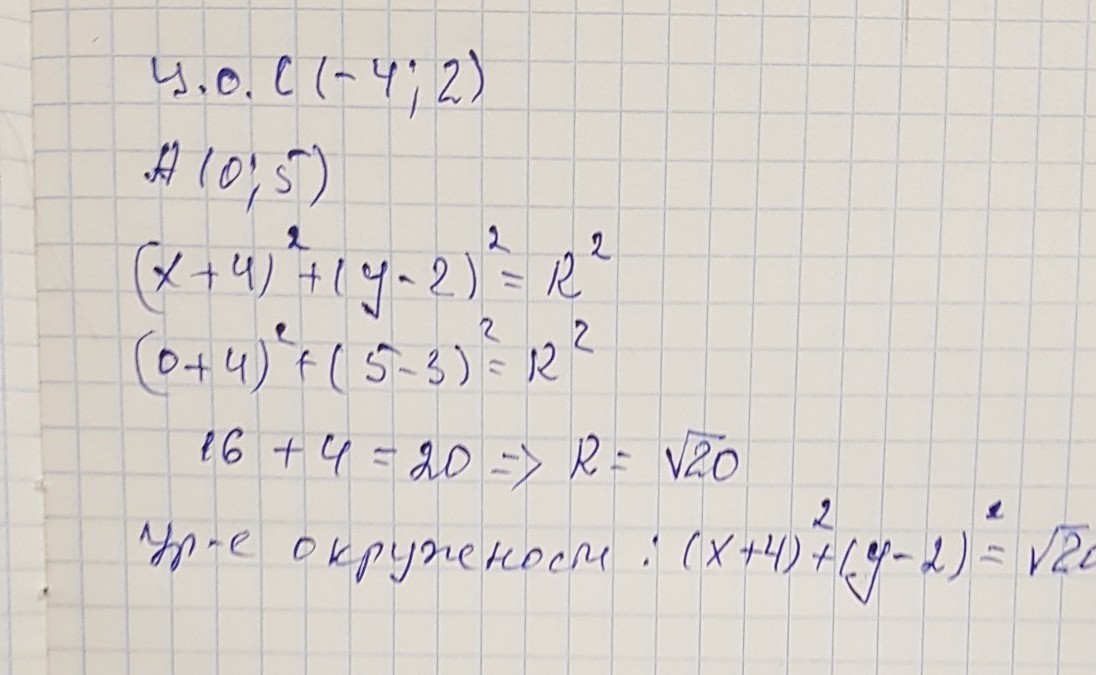 Ц.О. C (-4; 2)
A (0; 5)
(x+4)² + (y-2)² = R²
(0+4)² + (5-3)² = R²
16 + 4 = 20 => R = √20
Ур-е окружност : (x+4)² + (y-2)² = √20